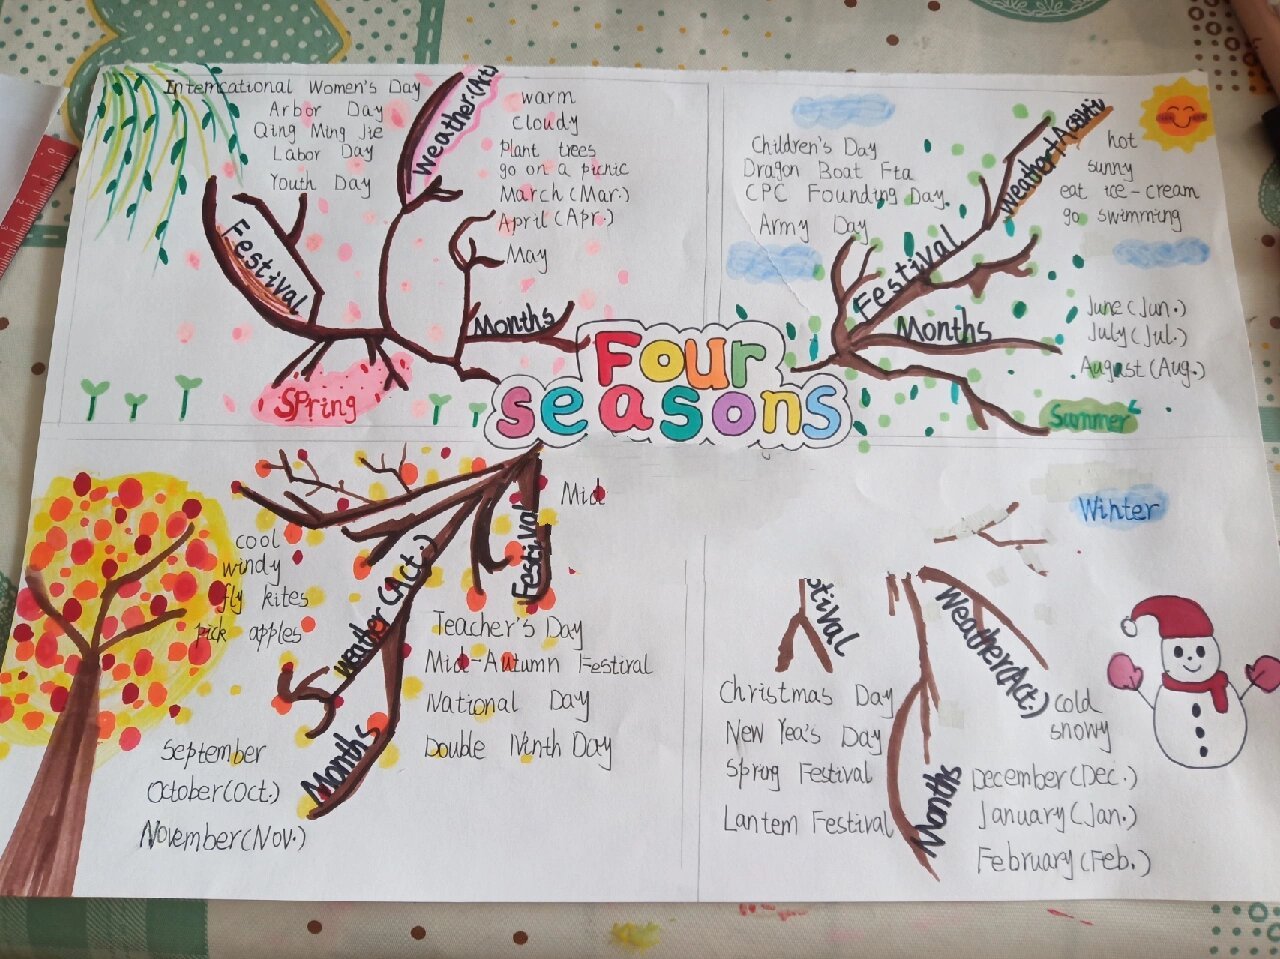 International Women's Day
Arbor Day
Qing Ming Jie
Labor Day
Youth Day
Festival
Weather.(Act
warm
cloudy
plant trees
go on a picnic
March(Mar.)
April(Apr.)
May
Months
Spring
Four
seasons
Children's Day
Dragon Boat Fta
CPC Founding Day.
Army Day
Festival
Weather
hot
sunny
eat ice-cream
go swimming
Months
June(Jun.)
July(Jul.)
August(Aug.)
Summer
cool
windy
fly kites
pick apples
weather(Act.)
Festival
Mid
Teacher's Day
Mid-Autumn Festival
National Day
Double Ninth Day
Months
September
October(Oct.)
November(Nov.)
Winter
stival
Weather(Act.)
cold
snowy
Christmas Day
New Yea's Day
Spring Festival
Lantem Festival
Months
December(Dec.)
January(Jan.)
February(Feb.)